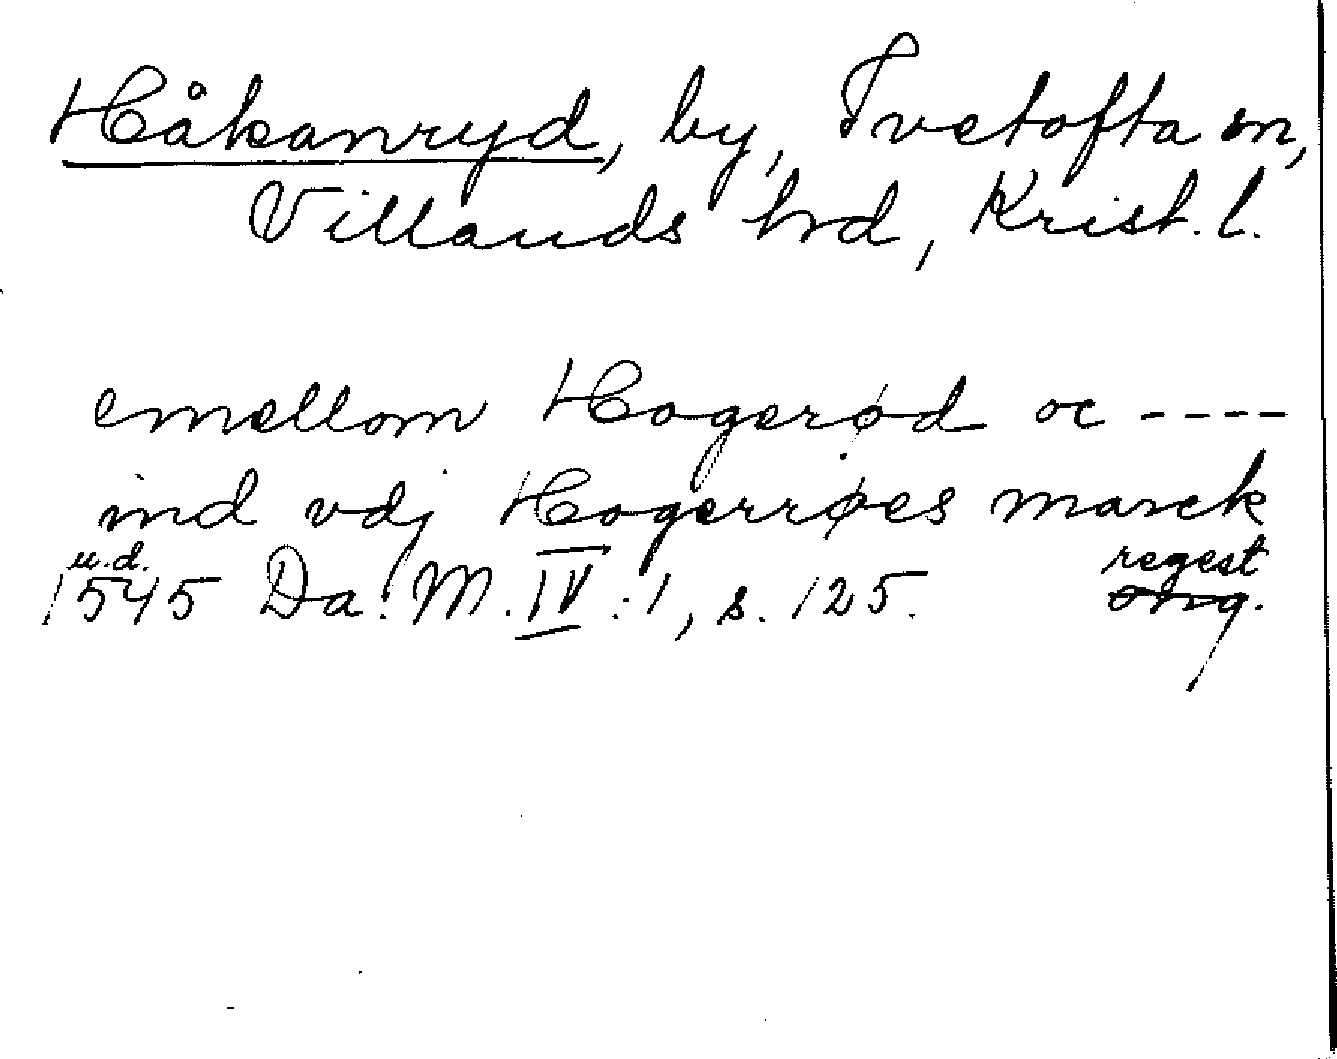 Håkanryd, by, Ivetofta sn,
Villands hrd, Krist. l.
emellom Hogerød oc ----
ind vdj Hogerrøes marck
u.d. regest
1545 Da. M. IV:1, s. 125. orig.